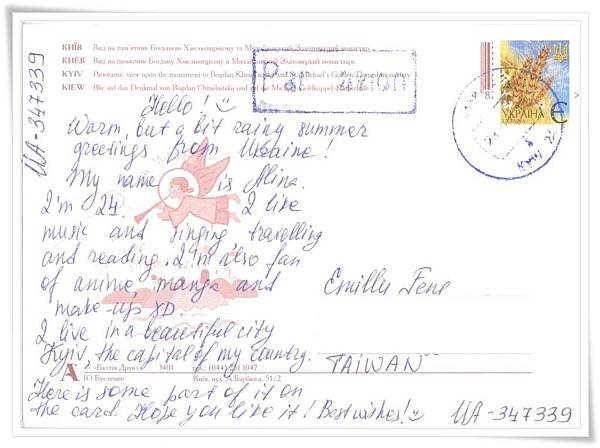 КИЇВ Вид на пам'ятник Богданові Хмельницькому та Михайлівський Золотоверхий монастир
КИЕВ Вид на памятник Богдану Хмельницкому и Михайловский Златоверхий монастырь
KYIV Panoramic view upon the monument to Bohdan and St. Michael's Golden
KIEW Blic auf das Denkmal von Bogdan Chmelnitskij und auf die
UA-347339
УКРАЇНА
Є
Hello! :)
Warm, but a bit rainy summer
greetings from Ukraine!
My name is Alina.
I'm 24. I like
music and singing travelling
and reading. I'm also fan
of anime, manga and
make-up XD.
I live in a beautiful city
Kyiv, the capital of my country.
Here is some part of it on
the card. Hope you like it! Best wishes! :)
Emillu Fene
TAIWAN
А "Балтія Друк" 3401 тел.: (044) 1047
Ю.Бусленко Київ, вул. А.Барбюса, 51/2
UA-347339